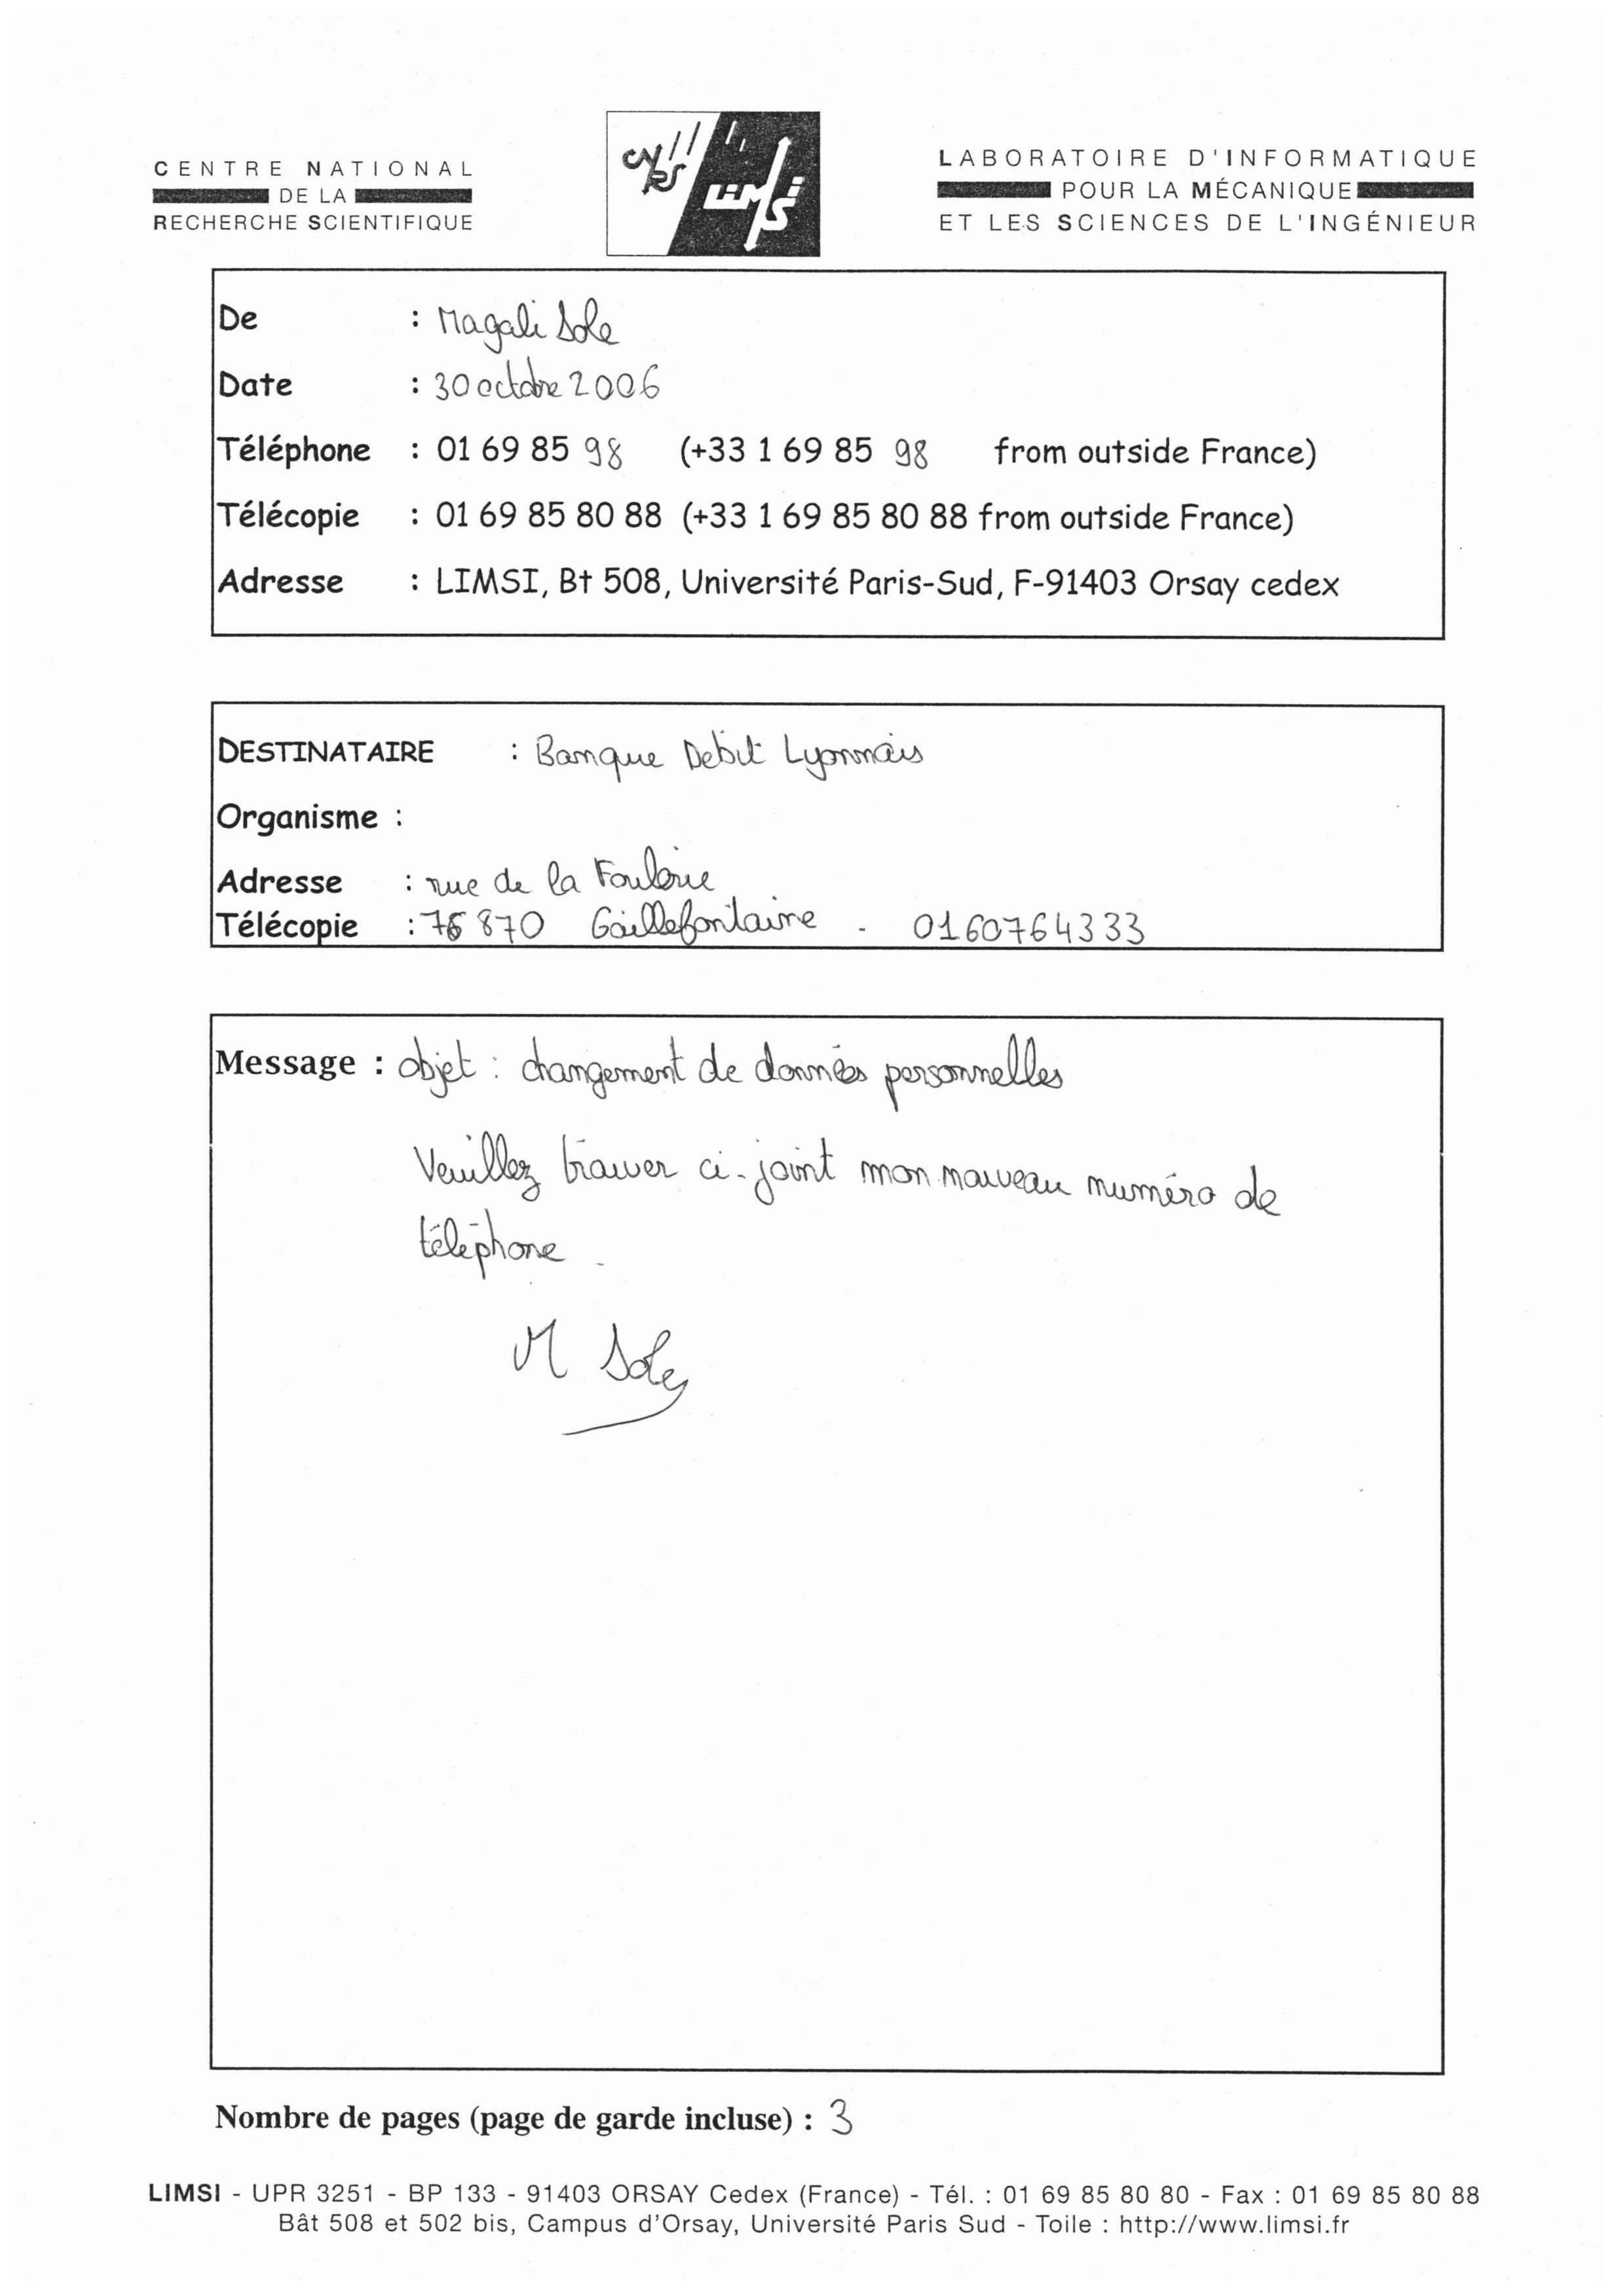 CENTRE NATIONAL
DE LA
RECHERCHE SCIENTIFIQUE
CNRS LIMSI
LABORATOIRE D'INFORMATIQUE
POUR LA MÉCANIQUE
ET LES SCIENCES DE L'INGÉNIEUR
De : Magali Sole
Date : 30 octobre 2006
Téléphone : 01 69 85 98 (+33 1 69 85 98 from outside France)
Télécopie : 01 69 85 80 88 (+33 1 69 85 80 88 from outside France)
Adresse : LIMSI, Bt 508, Université Paris-Sud, F-91403 Orsay cedex
DESTINATAIRE : Banque Debit Lyonnais
Organisme :
Adresse : rue de la Foulerie
Télécopie : 76 870 Gaillefontaine . 0160764333
Message : objet : changement de données personnelles
Veuillez trouver ci-joint mon nouveau numéro de
téléphone .
M Sole
Nombre de pages (page de garde incluse) : 3
LIMSI - UPR 3251 - BP 133 - 91403 ORSAY Cedex (France) - Tél. : 01 69 85 80 80 - Fax : 01 69 85 80 88
Bât 508 et 502 bis, Campus d'Orsay, Université Paris Sud - Toile : http://www.limsi.fr